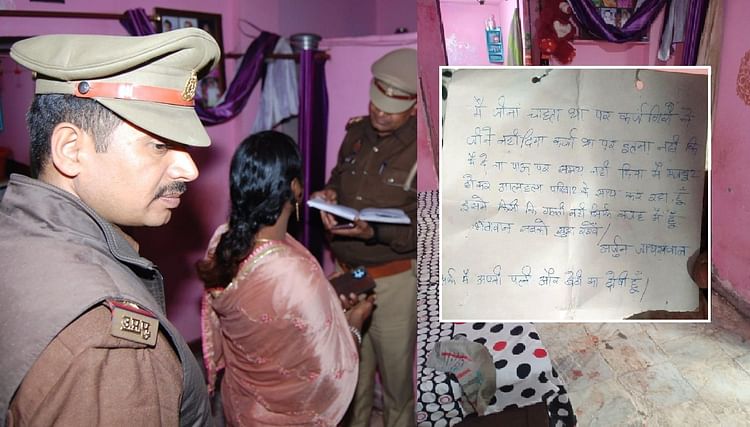 मैं जीना चाहता था पर कर्ज ने
जीने नहीं दिया कर्जा था पर इतना नहीं कि
मैं दे ना पाऊ पर समय नहीं दिया मैं मजबुर
होकर आत्महत्या परिवार के साथ कर रहा हूँ
इसमे किसी कि गलती नहीं सिर्फ मैं हूँ
भगवान सबको खुश रखे /
अर्जुन जायसवाल
मैं अपनी पत्नी और बेटी का दोषी हूँ /